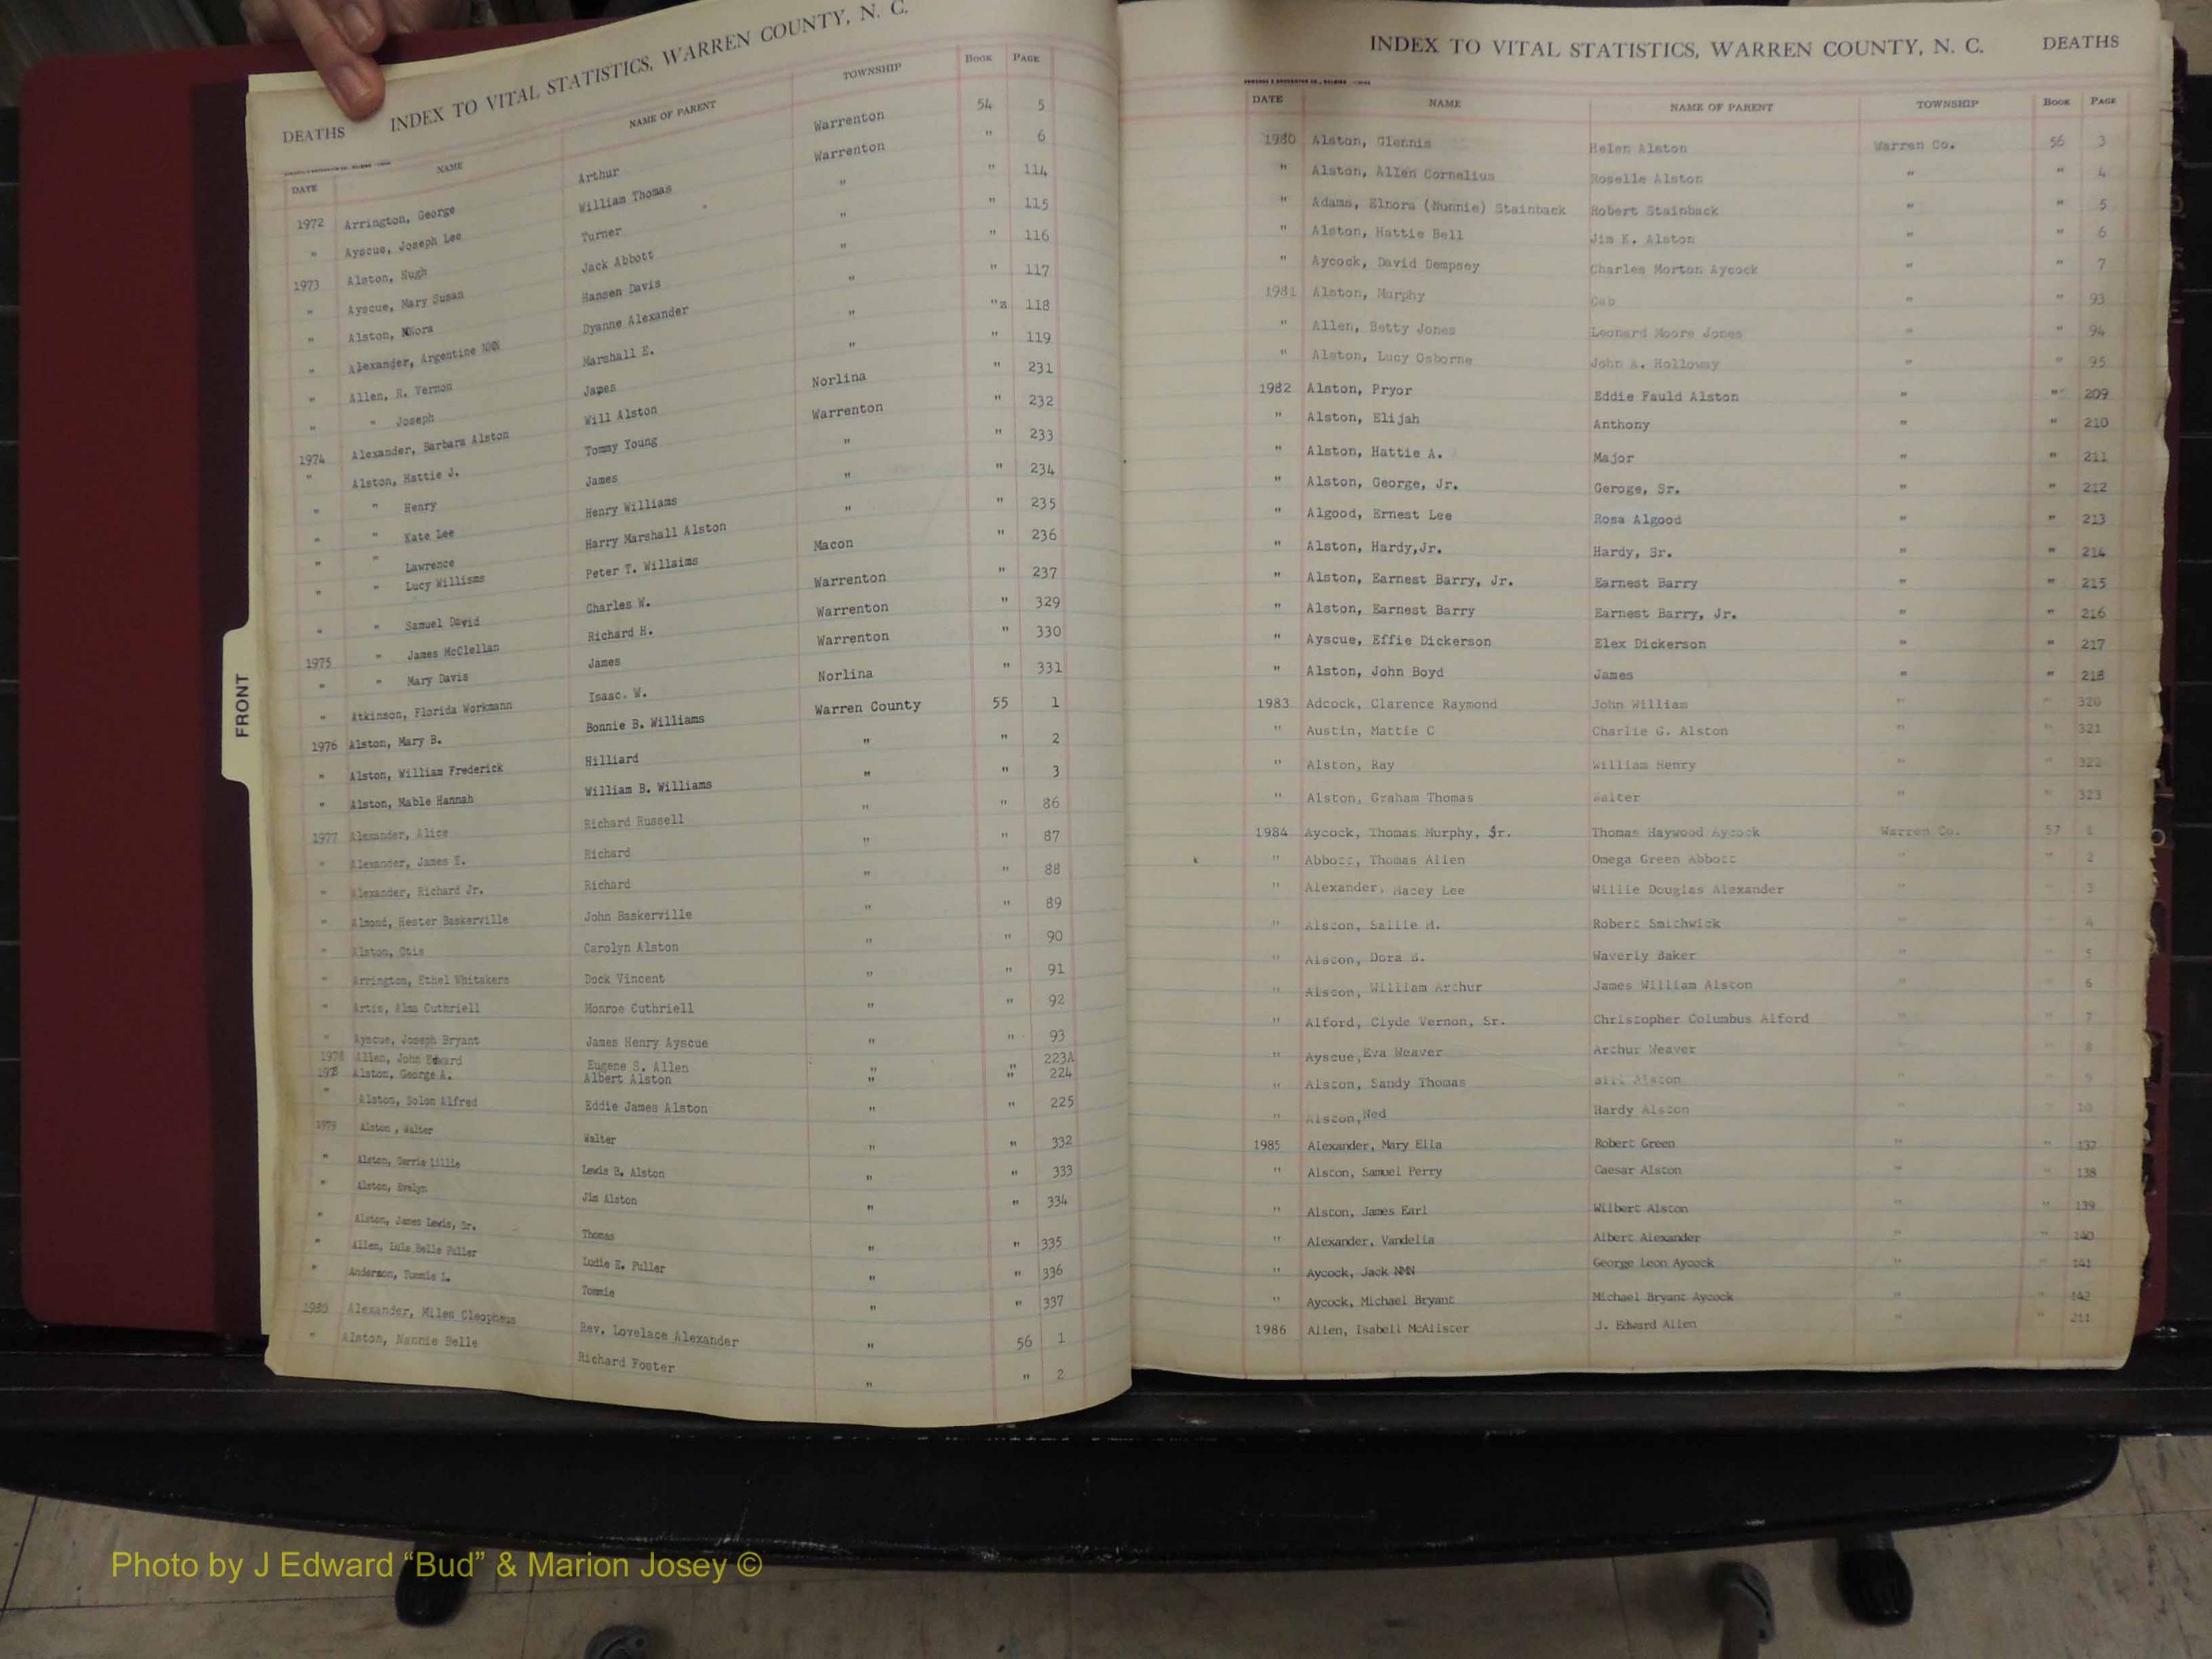 INDEX TO VITAL STATISTICS, WARREN COUNTY, N. C.
DEATHS
DATE NAME NAME OF PARENT TOWNSHIP BOOK PAGE
1972 Arrington, George Arthur Warrenton 54 5
" Ayscue, Joseph Lee William Thomas Warrenton " 6
1973 Alston, Hugh Turner " " 114
" Ayscue, Mary Susan Jack Abbott " " 115
" Alston, Nora Hansen Davis " " 116
" Alexander, Argentine NMN Dyanne Alexander " " 117
" Allen, R. Vernon Marshall E. " " 118
" " Joseph James " " 119
1974 Alexander, Barbara Alston Will Alston Norlina " 231
" Alston, Hattie J. Tommy Young Warrenton " 232
" " Henry James " " 233
" " Kate Lee Henry Williams " " 234
" " Lawrence Harry Marshall Alston " " 235
" " Lucy Willisms Peter T. Willaims Macon " 236
" " Samuel David Charles W. Warrenton " 237
1975 " James McClellan Richard H. Warrenton " 329
" " Mary Davis James Warrenton " 330
" Atkinson, Florida Workmann Isaac. W. Norlina " 331
1976 Alston, Mary B. Bonnie B. Williams Warren County 55 1
" Alston, William Frederick Hilliard " " 2
" Alston, Mable Hannah William B. Williams " " 3
1977 Alexander, Alice Richard Russell " " 86
" Alexander, James E. Richard " " 87
" Alexander, Richard Jr. Richard " " 88
" Almond, Hester Baskerville John Baskerville " " 89
" Alston, Otis Carolyn Alston " " 90
" Arrington, Ethel Whitakers Dock Vincent " " 91
" Artis, Alma Cuthriell Monroe Cuthriell " " 92
" Ayscue, Joseph Bryant James Henry Ayscue " " 93
1978 Allen, John Edward Eugene S. Allen " " 223A
1978 Alston, George A. Albert Alston " " 224
" Alston, Solon Alfred Eddie James Alston " " 225
1979 Alston , Walter Walter " " 332
" Alston, Carrie Lillie Lewis B. Alston " " 333
" Alston, Evelyn Jim Alston " " 334
" Alston, James Lewis, Sr. Thomas " " 335
" Allen, Lula Belle Fuller Ludie E. Fuller " " 336
" Anderson, Tommie L. Tommie " " 337
1980 Alexander, Miles Cleopheus Rev. Lovelace Alexander " 56 1
" Alston, Nannie Belle Richard Foster " " 2
FRONT
INDEX TO VITAL STATISTICS, WARREN COUNTY, N. C. DEATHS
DATE NAME NAME OF PARENT TOWNSHIP BOOK PAGE
1980 Alston, Glennis Helen Alston Warren Co. 56 3
" Alston, Allen Cornelius Roselle Alston " " 4
" Adams, Elnora (Nunnie) Stainback Robert Stainback " " 5
" Alston, Hattie Bell Jim K. Alston " " 6
" Aycock, David Dempsey Charles Morton Aycock " " 7
1981 Alston, Murphy Cab " " 93
" Allen, Betty Jones Leonard Moore Jones " " 94
" Alston, Lucy Osborne John A. Holloway " " 95
1982 Alston, Pryor Eddie Fauld Alston " " 209
" Alston, Elijah Anthony " " 210
" Alston, Hattie A. Major " " 211
" Alston, George, Jr. Geroge, Sr. " " 212
" Algood, Ernest Lee Rosa Algood " " 213
" Alston, Hardy,Jr. Hardy, Sr. " " 214
" Alston, Earnest Barry, Jr. Earnest Barry " " 215
" Alston, Earnest Barry Earnest Barry, Jr. " " 216
" Ayscue, Effie Dickerson Elex Dickerson " " 217
" Alston, John Boyd James " " 218
1983 Adcock, Clarence Raymond John William " " 320
" Austin, Mattie C Charlie G. Alston " " 321
" Alston, Ray William Henry " " 322
" Alston, Graham Thomas Walter " " 323
1984 Aycock, Thomas Murphy, Jr. Thomas Haywood Aycock Warren Co. 57 1
" Abbott, Thomas Allen Omega Green Abbott " " 2
" Alexander, Macey Lee Willie Douglas Alexander " " 3
" Alston, Sallie M. Robert Smithwick " " 4
" Alston, Dora B. Waverly Baker " " 5
" Alston, William Arthur James William Alston " " 6
" Alford, Clyde Vernon, Sr. Christopher Columbus Alford " " 7
" Ayscue,Eva Weaver Arthur Weaver " " 8
" Alston, Sandy Thomas Bill Alston " " 9
" Alston,Ned Hardy Alston " " 10
1985 Alexander, Mary Ella Robert Green " " 137
" Alston, Samuel Perry Caesar Alston " 138
" Alston, James Earl Wilbert Alston " " 139
" Alexander, Vandelia Albert Alexander " " 140
" Aycock, Jack NMN George Leon Aycock " " 141
" Aycock, Michael Bryant Michael Bryant Aycock " " 142
1986 Allen, Isabell McAlister J. Edward Allen " " 211
Photo by J Edward “Bud” & Marion Josey ©